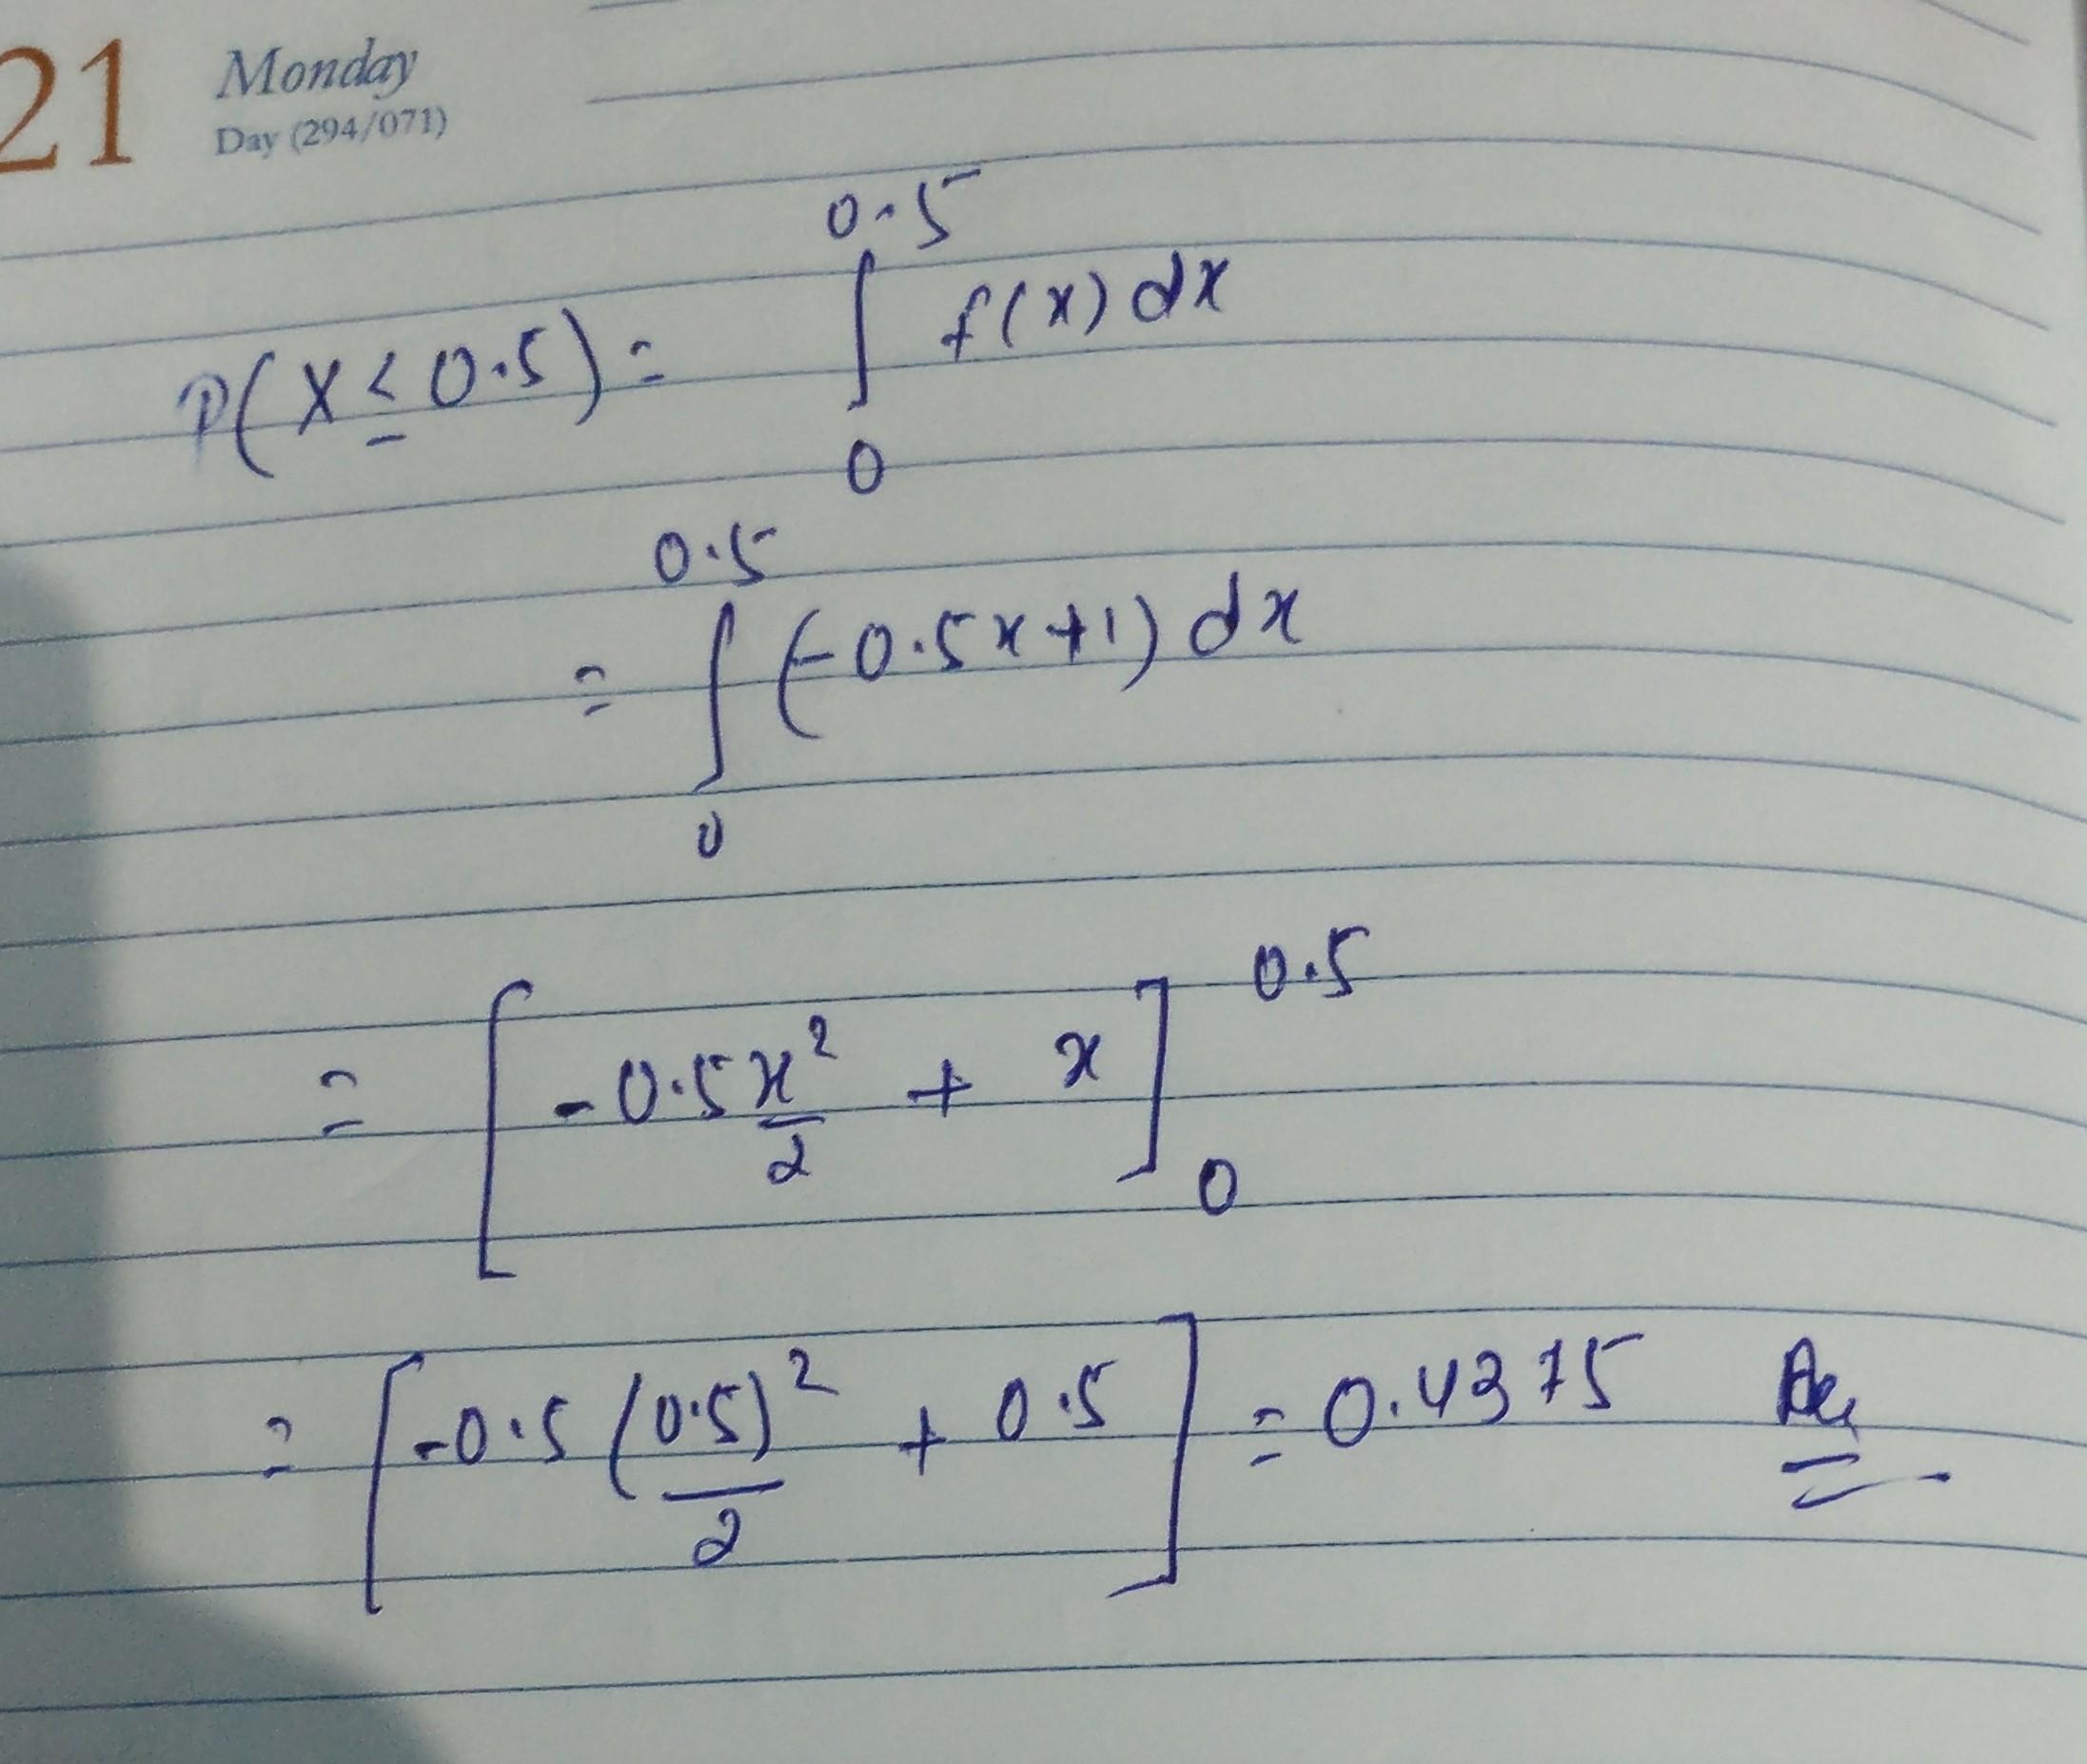 21 Monday
Day (294/071)
P(X ≤ 0.5) = ∫₀^0.5 f(x) dx
= ∫₀^0.5 (-0.5x+1) dx
= [-0.5 x²/2 + x]₀^0.5
= [-0.5 (0.5)²/2 + 0.5] = 0.4375